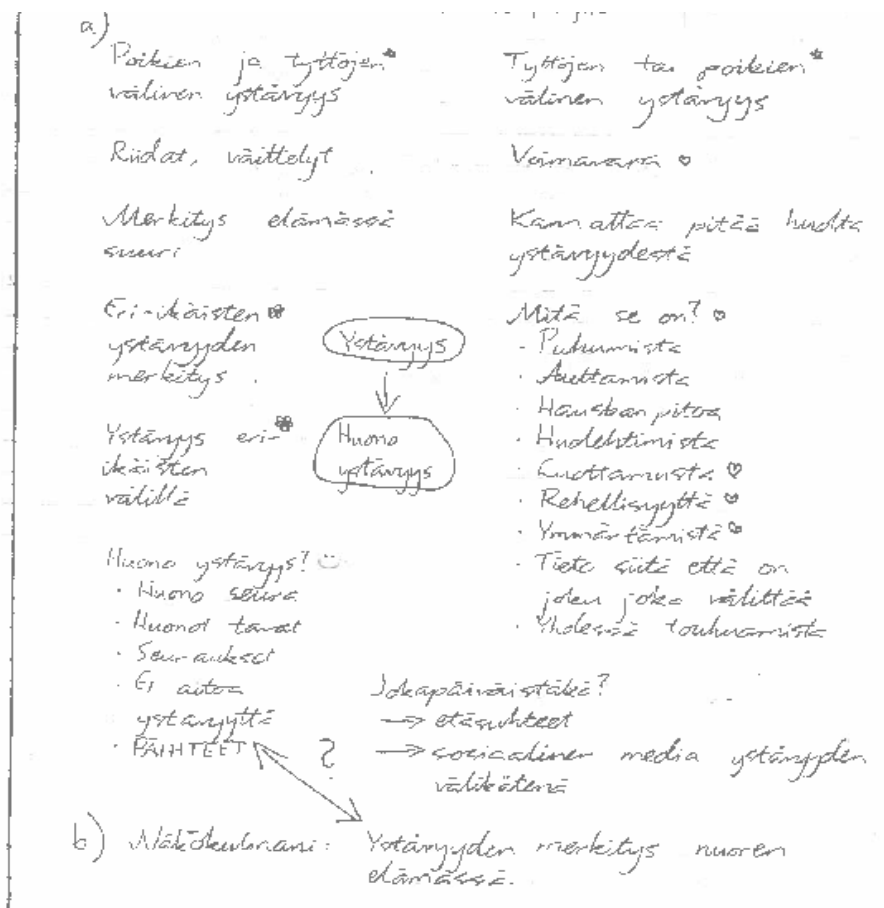 a)
Poikien ja tyttöjen*
välinen ystävyys
Riidat, väittelyt
Merkitys elämässä
suuri
Eri-ikäisten
ystävyyden
merkitys
Ystävyys eri-
ikäisten
välillä
Huono ystävyys?
· Huono seura
· Huonot tavat
· Seuraukset
· Ei aitoa
ystävyyttä
· PÄIHTEET
?
Ystävyys
Huono
ystävyys
Tyttöjen tai poikien*
välinen ystävyys
Voimavara ♡
Kannattaa pitää huolta
ystävyydestä
Mitä se on? ♡
- Puhumista
· Auttamista
· Hauskan pitoa
· Huolehtimista
· Luottamusta ♡
· Rehellisyyttä ♡
· Ymmärtämistä ♡
· Tieto siitä että on
joku joka välittää
· Yhdessä touhuamista
Jokapäiväistäkö?
→ etäsuhteet
→ sosiaalinen media ystävyyden
välikätenä
b) Näkökulmani: Ystävyyden merkitys nuoren
elämässä.